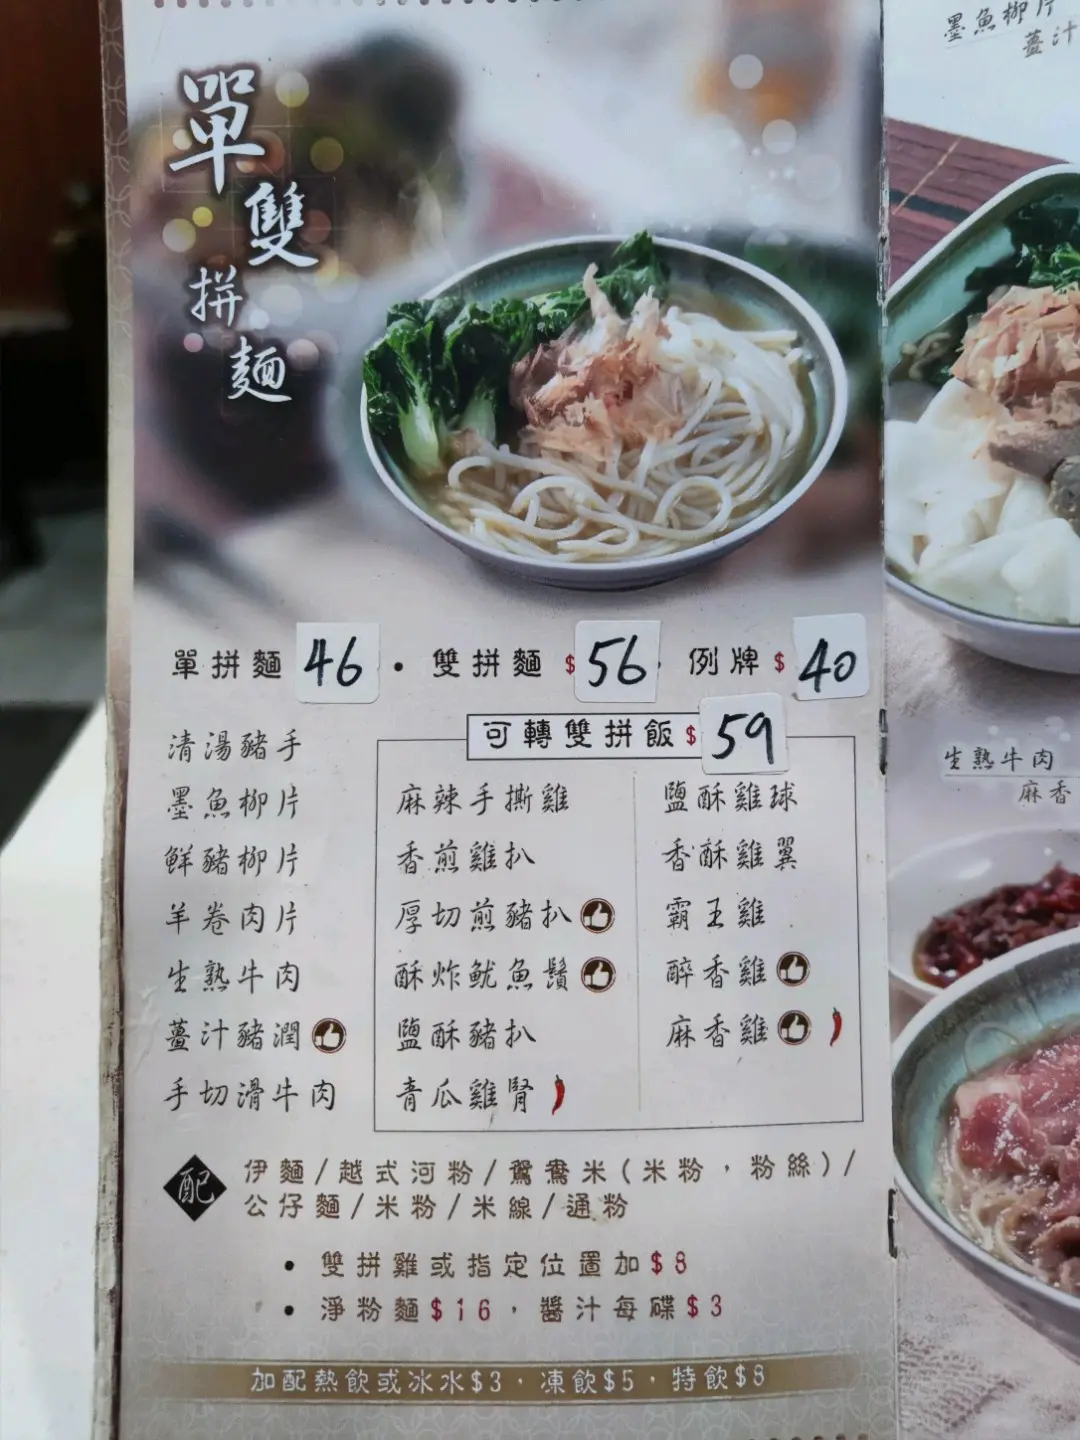 單雙拼麵
墨魚柳片
薑汁
單拼麵 46 • 雙拼麵 $56 例牌 $40
可轉雙拼飯 $59
清湯豬手
墨魚柳片
鮮豬柳片
羊卷肉片
生熟牛肉
薑汁豬潤
手切滑牛肉
麻辣手撕雞
香煎雞扒
厚切煎豬扒
酥炸魷魚鬚
鹽酥豬扒
青瓜雞腎
鹽酥雞球
香酥雞翼
霸王雞
醉香雞
麻香雞
配 伊麵/越式河粉/鴛鴦米(米粉，粉絲)/
公仔麵/米粉/米線/通粉
• 雙拼雞或指定位置加$8
• 淨粉麵$16，醬汁每碟$3
加配熱飲或冰水$3，凍飲$5，特飲$8
生熟牛肉
麻香